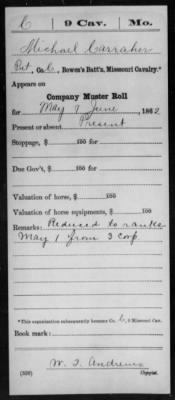 C | 9 Cav. | Mo.
Michael Carraher
Pvt, Co. C, Bowen's Batt'n, Missouri Cavalry.*
Appears on
Company Muster Roll
for May & June, 1862
Present or absent Present
Stoppage, $ 100 for
Due Gov't, $ 100 for
Valuation of horse, $ 100
Valuation of horse equipments, $ 100
Remarks: Reduced to ranks
May 1 from 3 Corp
*This organization subsequently became Co. C, 9 Missouri Cav.
Book mark:
W. T. Andrews
Copyist.